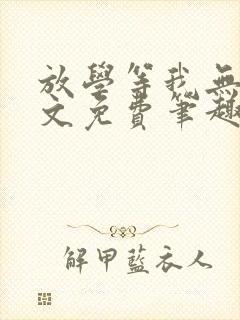 放學等我無
文免費筆趣
解甲藍衣人